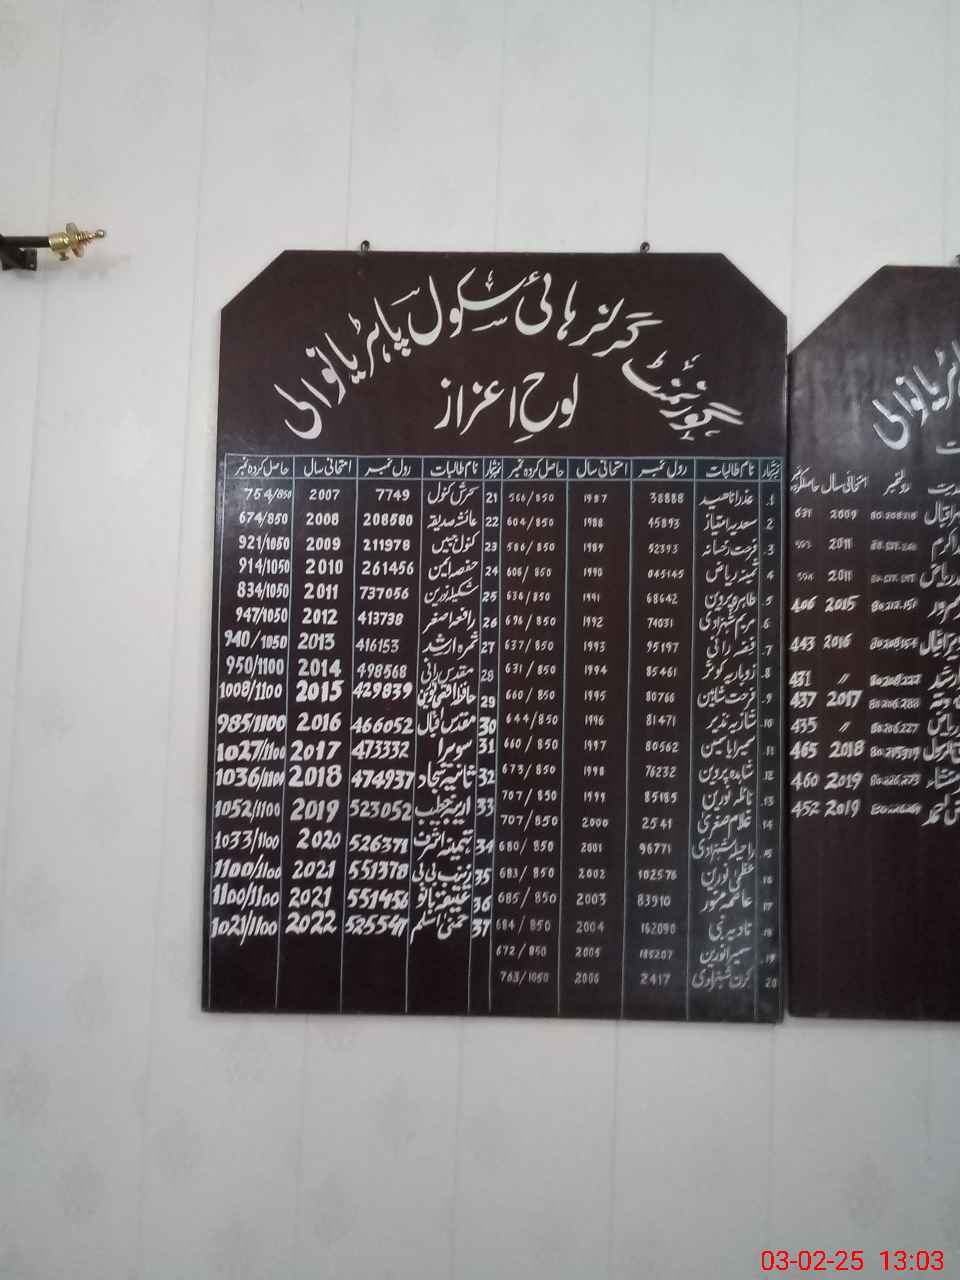 گورنمنٹ گرلز ہائی سکول پاہڑیانوالی
لوحِ اعزاز
نمبرشمار نام طالبات رول نمبر امتحانی سال حاصل کردہ نمبر
1 عذرا ناھید 38888 1987 566/850
2 سعدیہ امتیاز 45893 1988 604/850
3 فرحت رخسانہ 52393 1989 586/850
4 ثمینہ ریاض 045145 1990 606/850
5 طاہرہ پروین 68642 1991 636/850
6 مریم شہزادی 74031 1992 696/850
7 فضہ رانی 95197 1993 637/850
8 زوباریہ کوثر 85461 1994 631/850
9 فرحت شاہین 80766 1995 660/850
10 شازیہ نذیر 81471 1996 644/850
11 سمیرا یاسمین 80562 1997 660/850
12 شاہدہ پروین 76232 1998 673/850
13 نائلہ نورین 85185 1999 707/850
14 غلام صغریٰ 2541 2000 707/850
15 راحیلہ شہزادی 96771 2001 680/850
16 عظمیٰ نورین 102576 2002 683/850
17 عاصمہ منور 83910 2003 685/850
18 نادیہ نبی 162090 2004 684/850
19 سمیرا نورین 185207 2005 672/850
20 کرن شہزادی 2417 2006 763/1050
نمبرشمار نام طالبات رول نمبر امتحانی سال حاصل کردہ نمبر
21 سحرش کنول 7749 2007 754/850
22 عائشہ صدیقہ 208580 2008 674/850
23 کنول جبیں 211978 2009 921/1050
24 حفصہ امین 261456 2010 914/1050
25 شکیلہ نورین 737056 2011 834/1050
26 رافعہ اصغر 413738 2012 947/1050
27 ثمرہ ارشد 416153 2013 940/1050
28 مقدس رانی 498568 2014 950/1100
29 حافظہ 429839 2015 1008/1100
30 مقدس اقبال 466052 2016 985/1100
31 سویرا 473332 2017 1027/1100
32 ثانیہ سجاد 474937 2018 1036/1100
33 اریبہ خطیب 523052 2019 1052/1100
34 تہمینہ اشرف 526371 2020 1033/1100
35 زینب بی بی 551378 2021 1100/1100
36 عتیقہ بانو 551456 2021 1100/1100
37 حمنیٰ اسلم 525547 2022 1021/1100
ہڑیانوالی
رول نمبر امتحانی سال حاصل کردہ
2009 631
2011 593
2011 594
2015 406
2016 443
〃 431
2017 437
〃 435
2018 465
2019 460
2019 452
03-02-25 13:03